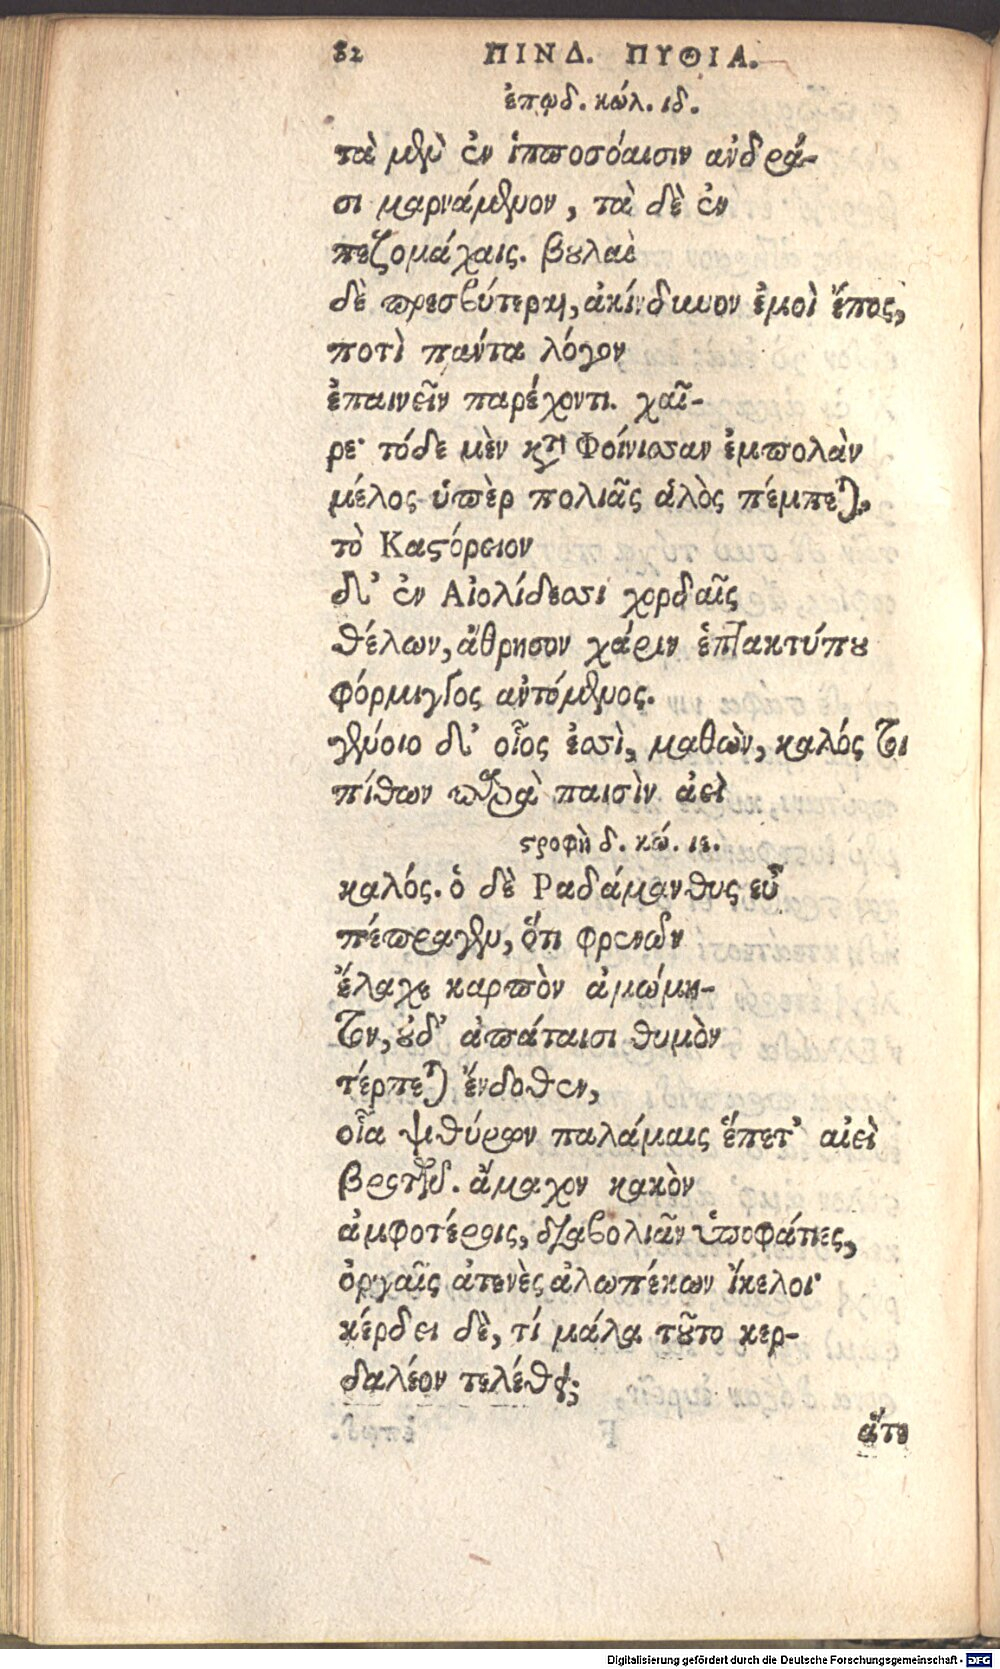 82 ΠΙΝΔ. ΠΥΘΙΑ.
ἐπῳδ. κώλ. ιδ.
τὰ μὲν ἐν ἱπποσόαισιν ἀνδρά-
σι μαρνάμενον, τὰ δὲ ἐν
πεζομάχαις. βουλαὶ
δὲ πρεσβύτεραι, ἀκίνδυνον ἐμοὶ ἔπος,
ποτὶ πάντα λόγον
ἐπαινεῖν παρέχοντι. χαῖ-
ρε· τόδε μὲν κατὰ Φοίνισσαν ἐμπολὰν
μέλος ὑπὲρ πολιᾶς ἁλὸς πέμπεται,
τὸ Καστόρειον
δ' ἐν Αἰολίδεσσι χορδαῖς
θέλων, ἄθρησον χάριν ἑπτακτύπου
φόρμιγγος ἀντόμενος.
γένοιο δ' οἷος ἐσσὶ, μαθὼν, καλός τοι
πίθων παρὰ παισὶν ἀεὶ
στροφὴ δ. κώ. ιε.
καλός. ὁ δὲ Ραδάμανθυς εὖ
πέπραγεν, ὅτι φρενῶν
ἔλαχε καρπὸν ἀμώμη-
τον, οὐδ' ἀπάταισι θυμὸν
τέρπεται ἔνδοθεν,
οἷα ψιθύρων παλάμαις ἕπετ' αἰεὶ
βροτῶν. ἄμαχον κακὸν
ἀμφοτέροις, διαβολιᾶν ὑποφάτιες,
ὀργαῖς ἀτενὲς ἀλωπέκων ἴκελοι·
κέρδει δὲ, τί μάλα τοῦτο κερ-
δαλέον τελέθει;
ἅτε
Digitalisierung gefördert durch die Deutsche Forschungsgemeinschaft - DFG